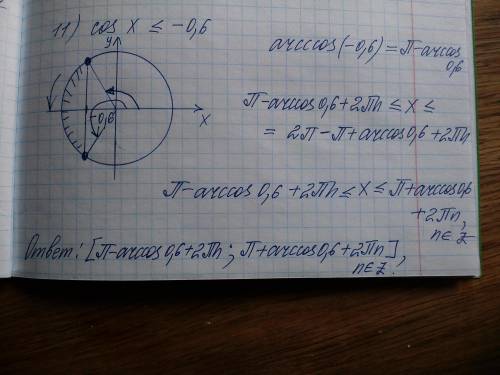 11) cos x ≤ -0,6
y
x
-0,6
arccos(-0,6) = π-arccos
0,6
π-arccos0,6+2πn ≤ x ≤
= 2π-π+arccos0,6+2πn
π-arccos0,6+2πn ≤ x ≤ π+arccos0,6
+2πn,
n∈Z
Ответ: [π-arccos0,6+2πn; π+arccos0,6+2πn],
n∈Z.